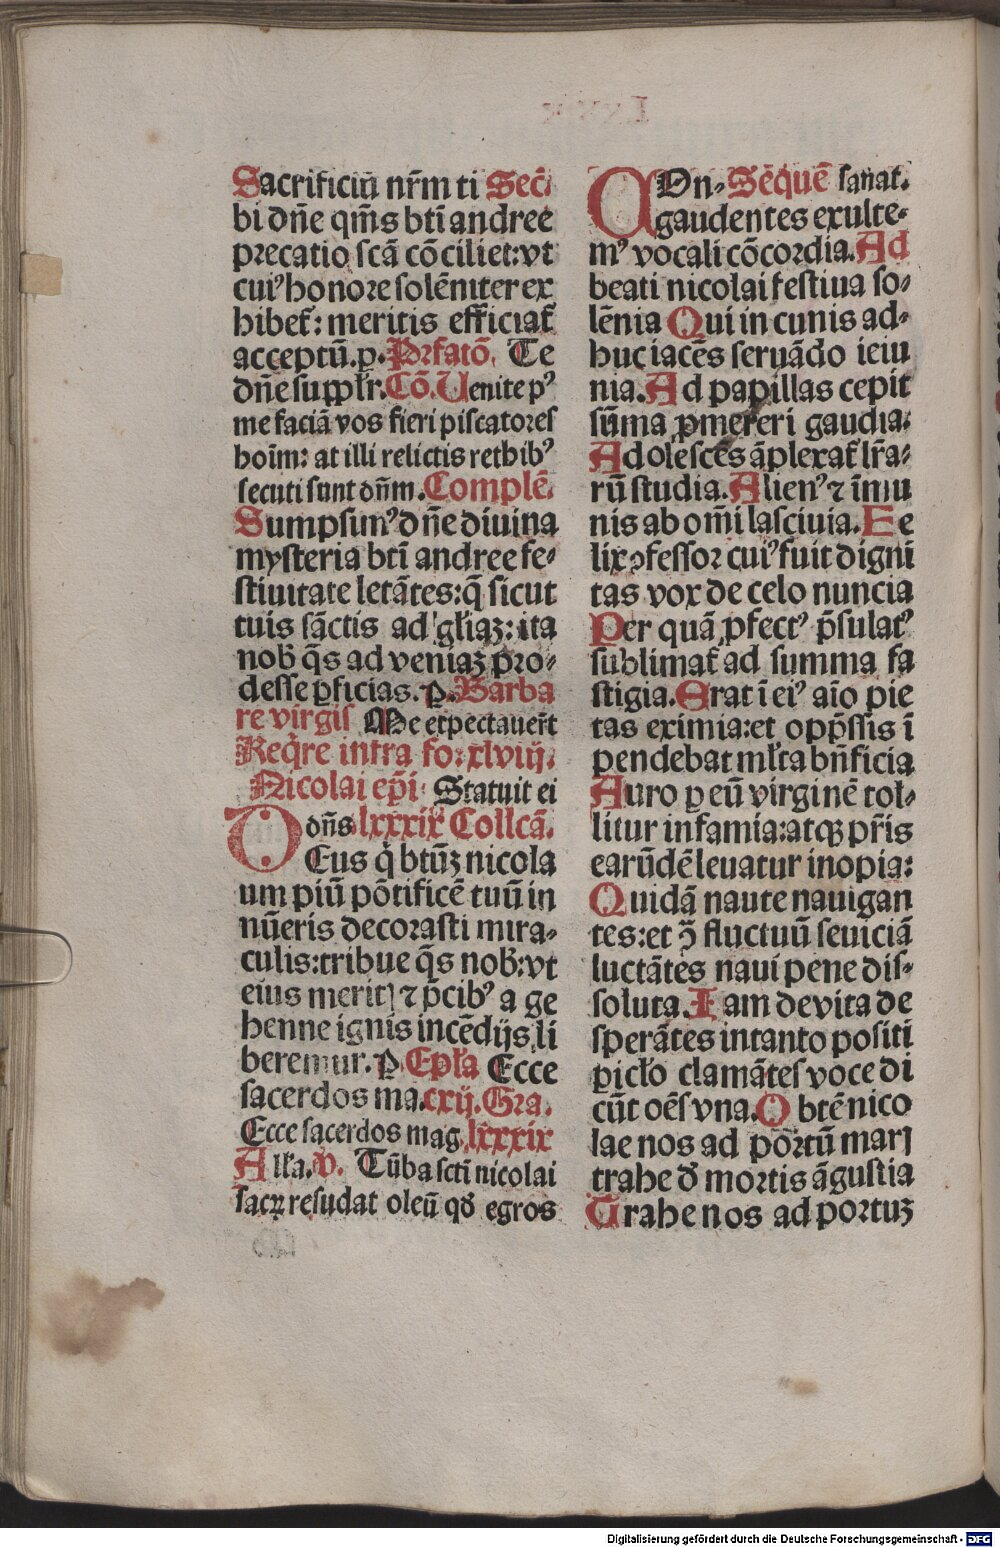 Sacrificiū nr̄m ti Sec̄.
bi dn̄e qm̄s bt̄i andree
precatio sc̄ā cōciliet: vt
cuiꝰ honore solēniter ex
hibet̄: meritis efficiat̄
acceptū. p. Prefatō. Te
dn̄e supplr̄. Cō. Uenite pꝰ
me faciā vos fieri piscatores
hoīm: at illi relictis retbibꝰ
secuti sunt dn̄m. Complē.
Sumpsimꝰ dn̄e diuina
mysteria bt̄i andree fe⸗
stiuitate letātes: q̄ sicut
tuis sāctis ad gl̄iaꝫ: ita
nob̄ q̄s ad veniaꝫ pro⸗
desse ꝑficias. p. Barba
re virgis Me exspectauerūt
Req̄re infra fo. xlviij.
Nicolai ep̄i. Statuit ei
dn̄s lxxxix Collcā.
DEus q̄ btūꝫ nicola
um piū pōtificē tuū in
nūeris decorasti mira⸗
culis: tribue q̄s nob̄: vt
eius merit̄ ⁊ p̄cibꝰ a ge
henne ignis incēdijs li
beremur. p. Epl̄a Ecce
sacerdos ma. cxij. Gra.
Ecce sacerdos mag. lxxxix
All'a. v. Tūba scti nicolai
sacꝝ resudat oleū qd̄ egros
COn⸗ Sēquē sanat.
gaudentes exulte⸗
mꝰ vocali cōcordia. Ad
beati nicolai festiua so⸗
lēnia Qui in cunis ad⸗
huc iacēs seruādo ieiu
nia. Ad papillas cepit
sūma ꝓmereri gaudia.
Adolescēs āplexat̄ lr̄a⸗
rū studia. Alienꝰ ⁊ īmu
nis ab om̄i lasciuia. Fe
lix ꝯfessor cuiꝰ fuit digni
tas vox de celo nuncia
Per quā ꝓfectꝰ p̄sulatꝰ
sublimat̄ ad summa fa
stigia. Erat ī eiꝰ aīo pie
tas eximia: et opp̄ssis ī
pendebat ml̄ta bn̄ficia
Auro ꝑ eū virginē tol⸗
litur infamia: atqꝫ pr̄is
earūdē leuatur inopia:
Quidā naute nauigan
tes: et ꝯ̄ fluctuū seuiciā
luctātes naui pene dis⸗
soluta. Iam de vita de
sperātes in tanto positi
ꝑicl'o clamātes voce di
cūt oēs vna. O btē nico
lae nos ad portū marꝭ
trahe d̄ mortis āgustia
Trahe nos ad portuꝫ
Digitalisierung gefördert durch die Deutsche Forschungsgemeinschaft - DFG